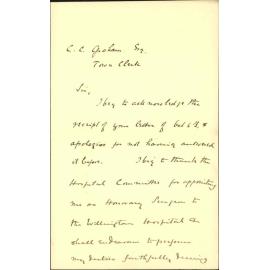 C. C. Graham Esq
Town Clerk
Sir,
I beg to acknowledge the
receipt of your letter of &
apologise for not having answered
it before. I beg to thank the
Hospital Committee for appointing
me as Honorary Surgeon to
the Wellington Hospital &
shall endeavour to perform
my duties faithfully during